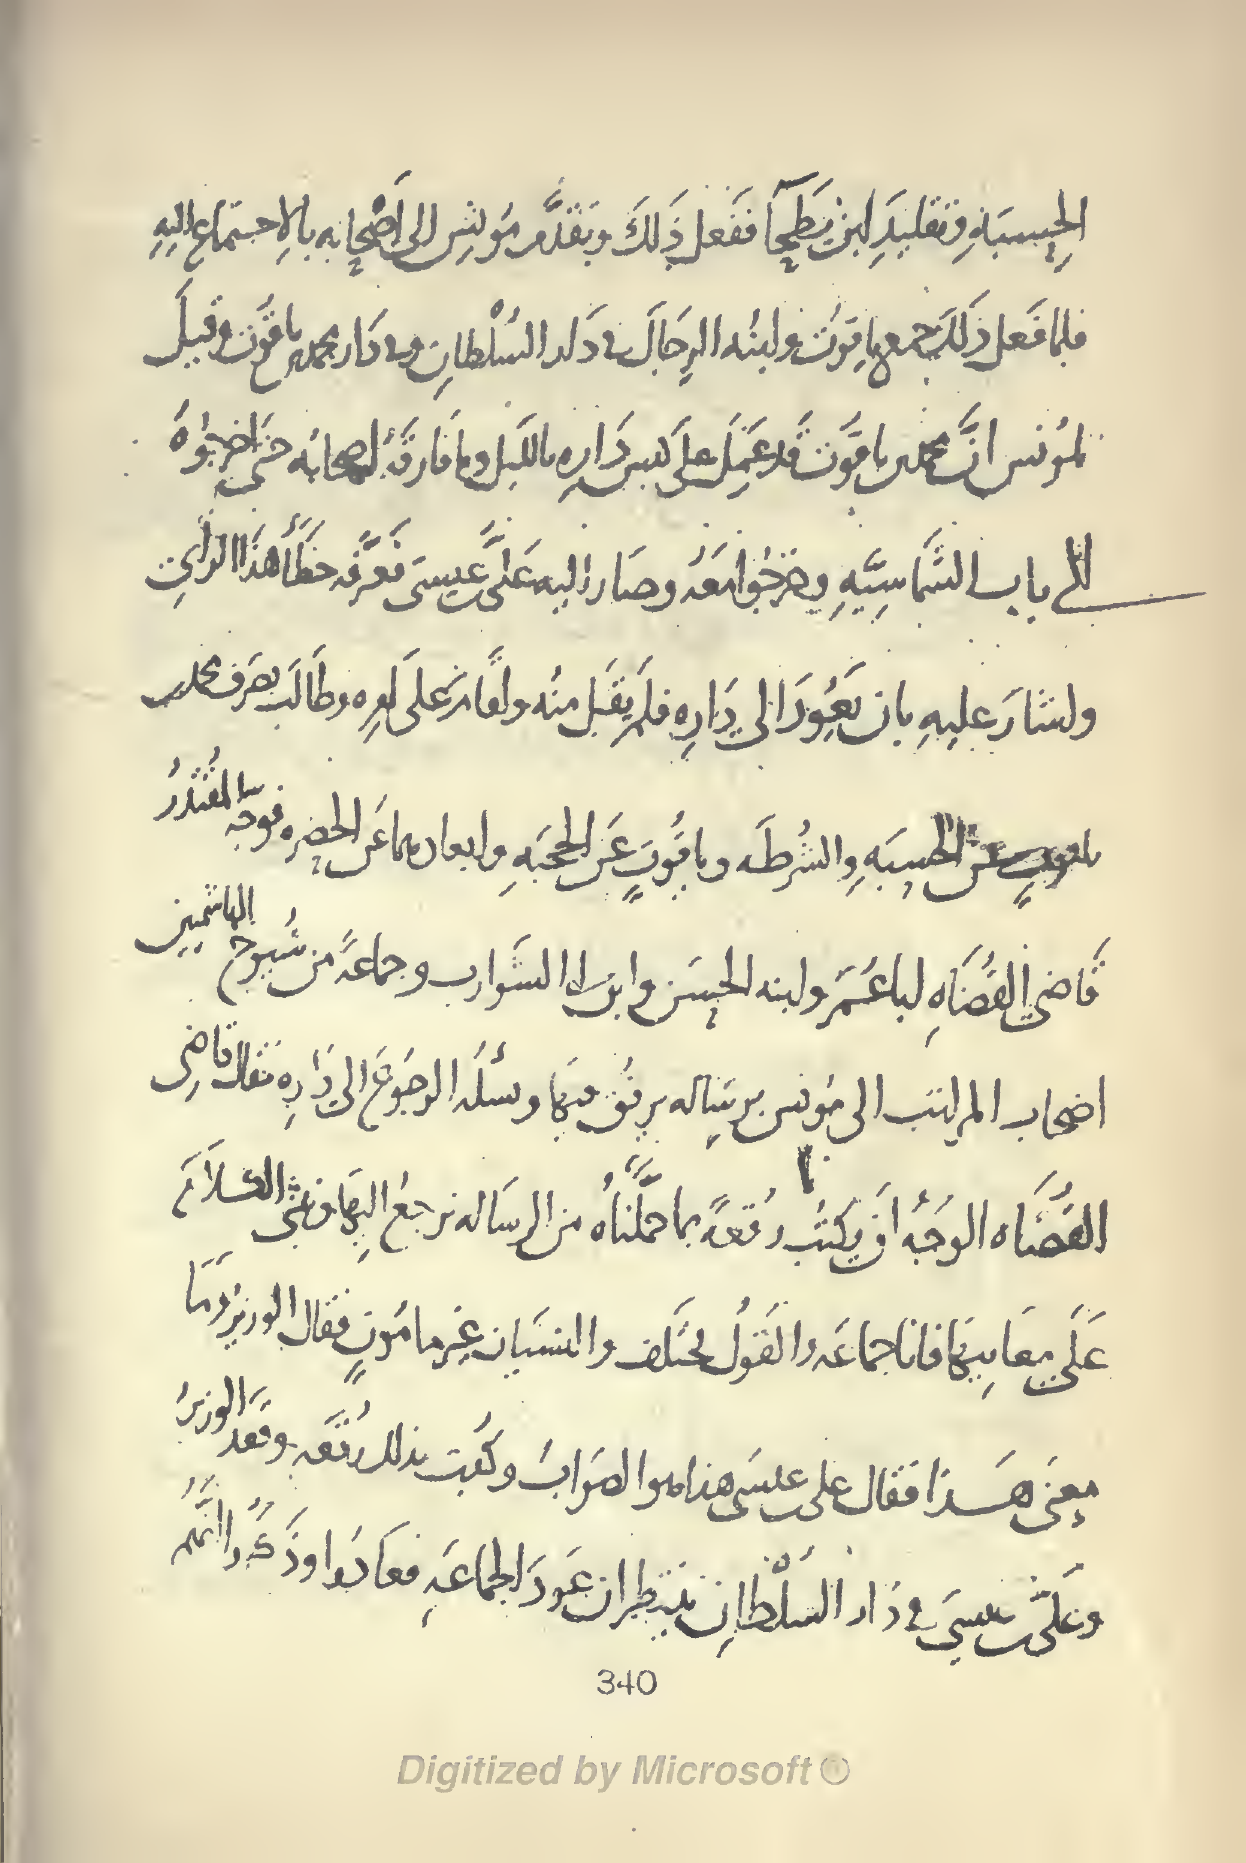 الحسبة وتقليد ابن بطحا ففعل ذلك وتقدم مونس الى اصحابه بالاجتماع اليه
فلما فعل ذلك جمع ياقوت وابنه الرجال في دار السلطان وفي دار محمد بن ياقوت وقيل
لمونس ان محمد بن ياقوت قد عمل على كبس داره بالليل وما فارقه اصحابه حتى اخرجوه
الى باب الشماسيه وخرجوا معه وصار اليه على بن عيسى فعرفه خطأ هذا الراى
واشار عليه بان يعود الى داره فلم يقبل منه واقام على امره وطالب بصرف محمد بن
ياقوت عن الحسبه والشرطه وياقوت عن الحجبه وابعادهما عن الحضره فوجه المقتدر
قاضي القضاه ابا عمر وابنه الحسن وابن ابي الشوارب وجماعة من شيوخ الهاشميين
اصحاب المراتب الى مونس برساله يرفق فيها وسئله الرجوع الى داره فقال قاضي
القضاه الوجه ان يكتب رقعة بما حملناه من الرساله نرجع اليها ونبنى الكلام
على معانيها فانا جماعه والقول يختلف والنسيان غير مامون فقال الوزير وما
معنى هذا فقال على بن عيسى هذا هو الصواب وكتب بذلك رقعه وقعد الوزير
وعلى بن عيسى في دار السلطان ينتظران عود الجماعه فعادوا وذكروا انهم
340
Digitized by Microsoft ®